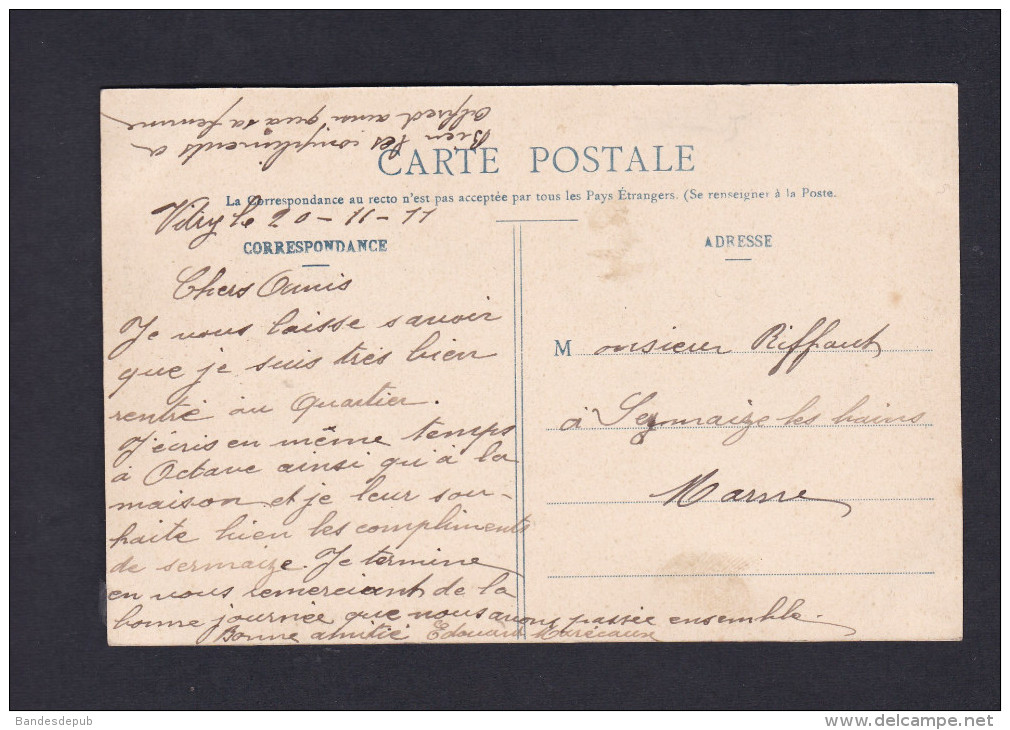 Bien les compliments a
Alfred ainsi qu'a sa femme
CARTE POSTALE
La Correspondance au recto n'est pas acceptée par tous les Pays Étrangers. (Se renseigner à la Poste.
Vitry le 20-11-11
CORRESPONDANCE
Chers Amis
Je vous laisse savoir
que je suis très bien
rentré au Quartier.
J'écris en même temps
à Octave ainsi qu'à la
maison et je leur sou-
haite bien les compliments
de sermaize. Je termine
en vous remerciant de la
bonne journée que nous avons passée ensemble.
Bonne amitié Edouard Marécaux
ADRESSE
Monsieur Riffaut
à Sermaize les bains
Marne
Bandesdepub
www.delcampe.net